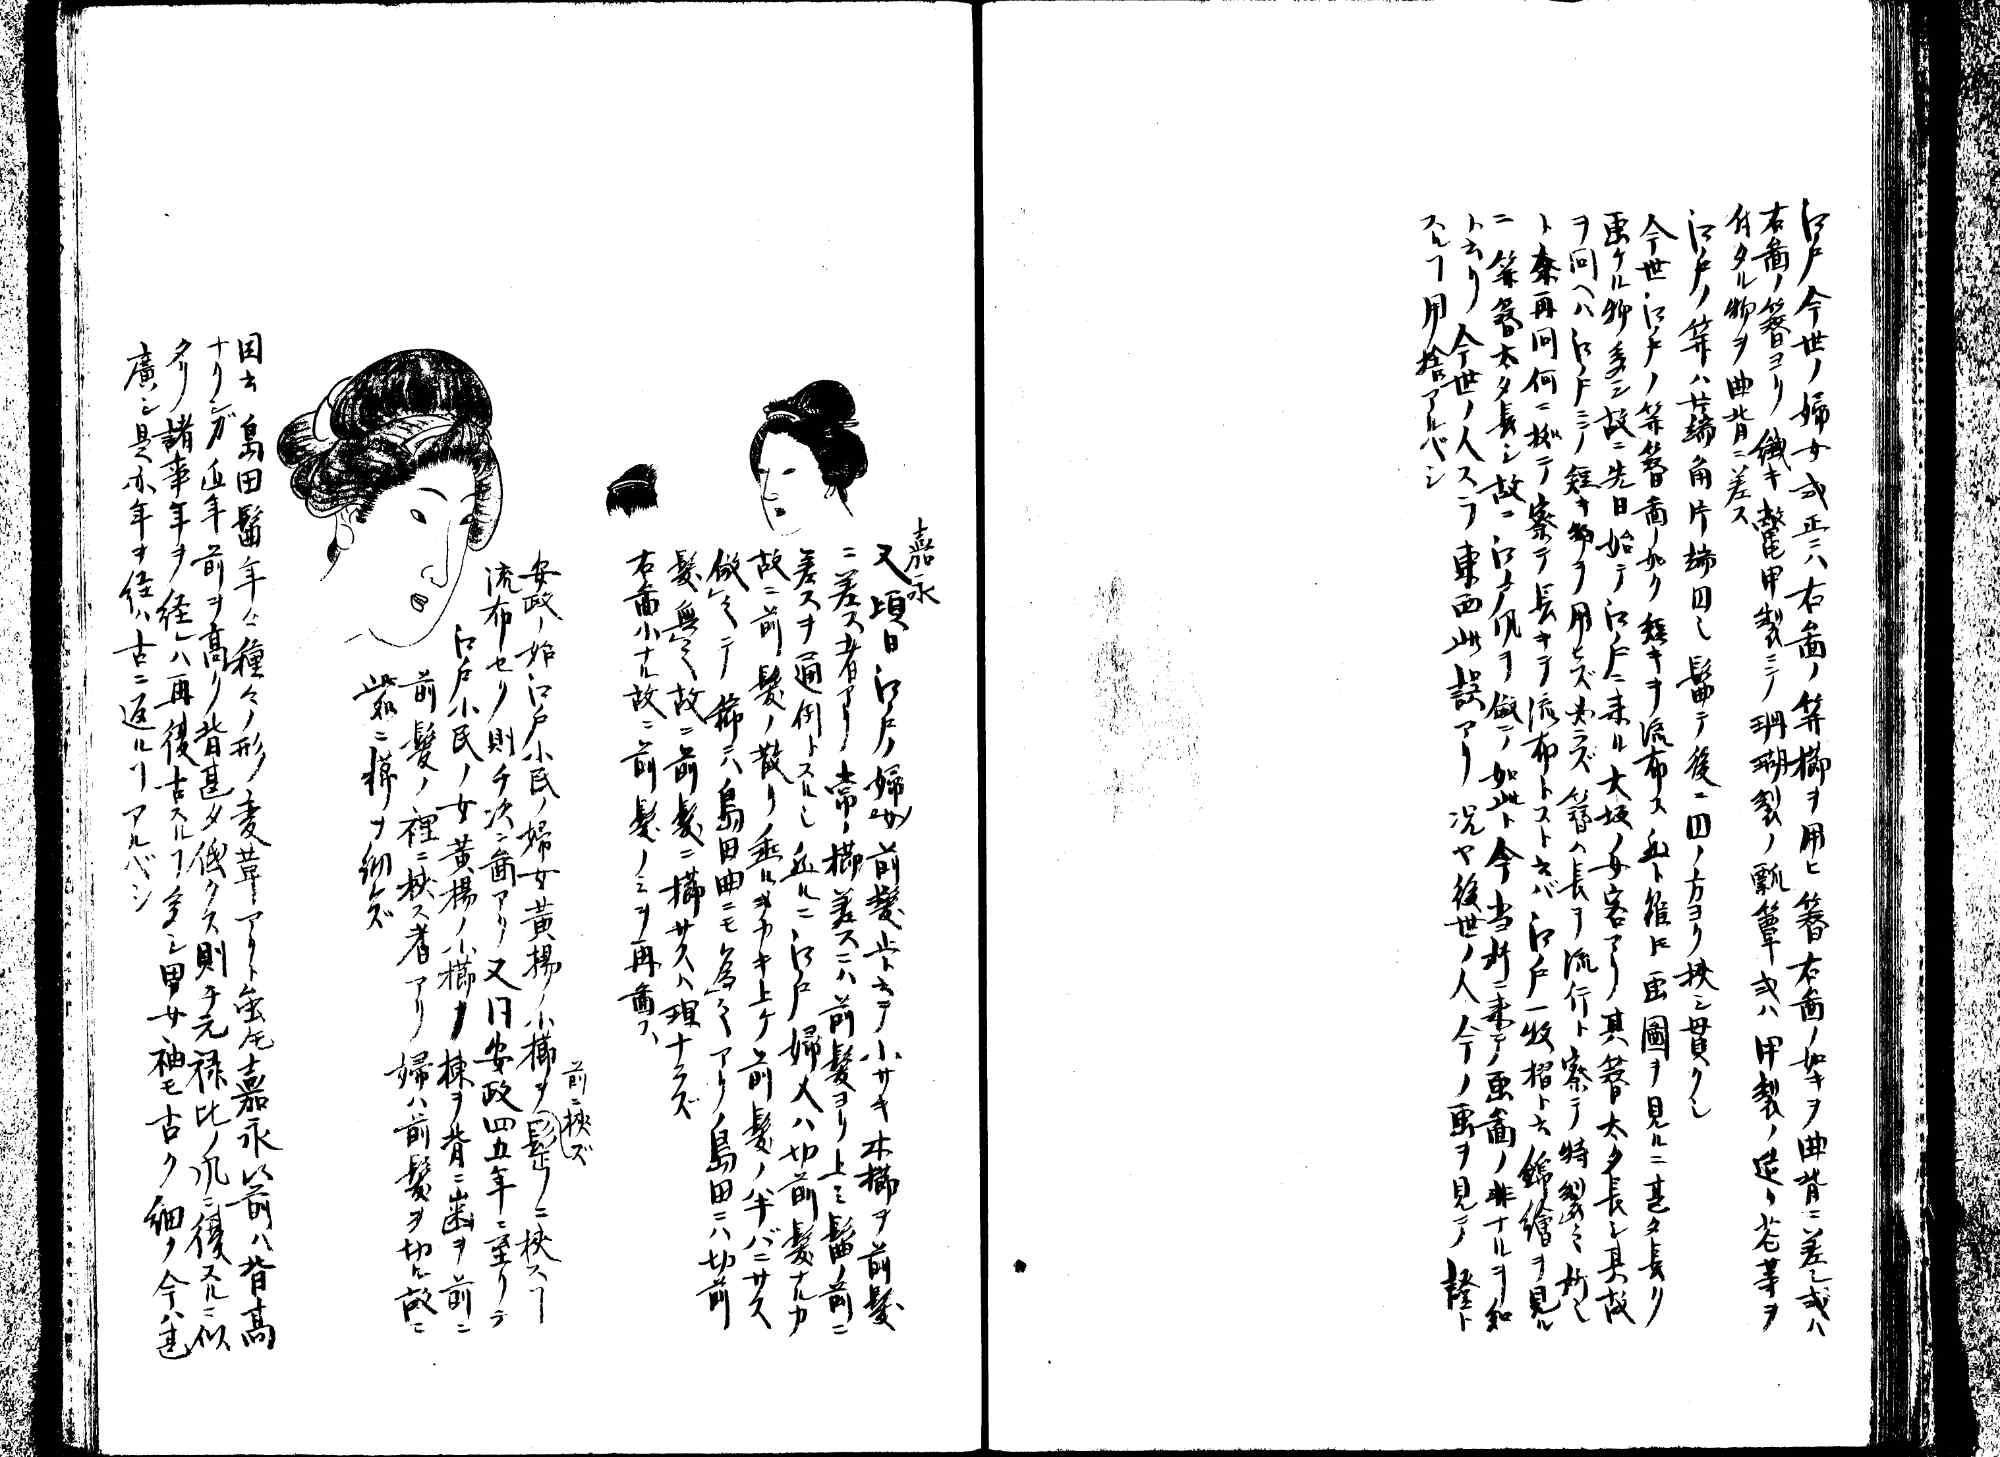 江戸今世ノ婦女或正ニハ右畵ノ笄櫛ヲ用ヒ簪右畵ノ如キヲ曲背ニ差シ或ハ
右畵ノ簪ヨリ繊キ鼈甲製ニノ珊瑚製ノ瓢簞或ハ甲製ノ造リ花等ヲ
付タル物ヲ曲背ニ差ス
江戸ノ笄ハ廿端角片端凹シ髷テ後ニ凹ノ方ヨリ挾シ貫クシ
今世江戸ノ笄簪畵ノ如ク短キヲ流布ス 雖モ画圖ヲ見ルニ甚タ長ク
画ケル物多シ故ニ先日始テ江戸ニ来ル大坂ノ女客アリ其簪太タ長シ其故
ヲ问ヘハ江戸ニノ短キ物ヲ用ヒズ 簪ハ長ヲ流行ト察テ特製
ト案再问何ニ拠テ察テ長キヲ流布トストヱバ江戸一枚摺ト云錦繪ヲ見ル
ニ笄簪太タ長シ故ニ江戸ノ風ヲ倣テ如此ト今当所ニ来テ画畵ノ非ナルヲ知
ト云リ今世ノ人スラ東西此誤アリ況ヤ後世ノ人今ノ画ヲ見テ證ト
スルヿ用捨アルベシ
嘉永
又頃日江戸ノ婦女前髪止ト云テ小サキ木櫛ヲ前髪
ニ差ス者アリ常ノ櫛差スニハ前髪ヨリ上ミ髷ノ前ニ
差スヲ通例トスルシ近ルニ江戸婦人ハ切前髪ナルカ
故ニ前髪ノ散リ垂ルヲカキ上ケ前髪ノ半バニサス
倣之テ稀ニハ島田曲ニモ為之アリノ島田ニハ切前
髪無之故ニ前髪ニ櫛サスハ理ナラズ
右畵小ナル故ニ前髪ノミヲ再畵ス
安政ノ始江戸小民ノ婦女黄楊ノ小櫛ヲ髱ニ挾スヿ
前ニ挾ズ
流布セリ則チ次ニ畵アリ又曰安政四五年ニ至リテ
江戸小民ノ女黄楊ノ小櫛ヲ棟ヲ背ニ歯ヲ前ニ
前髪ノ裡ニ挾ス者アリ婦ハ前髪ヲ切ル故ニ
此如ニ櫛ヲ
因云島田髷年々種々ノ形ノ変革アリト雖モ嘉永以前ハ背高
ナリシガ近年前ヲ高リ背甚タ低クス則チ元禄比ノ風ニ復スルニ似
タリ諸事年ヲ経レハ再復古スルヿ多シ男女袖モ古ク細ク今ハ甚
廣シ是亦年ヲ経ハ古ニ返ルヿアルベシ